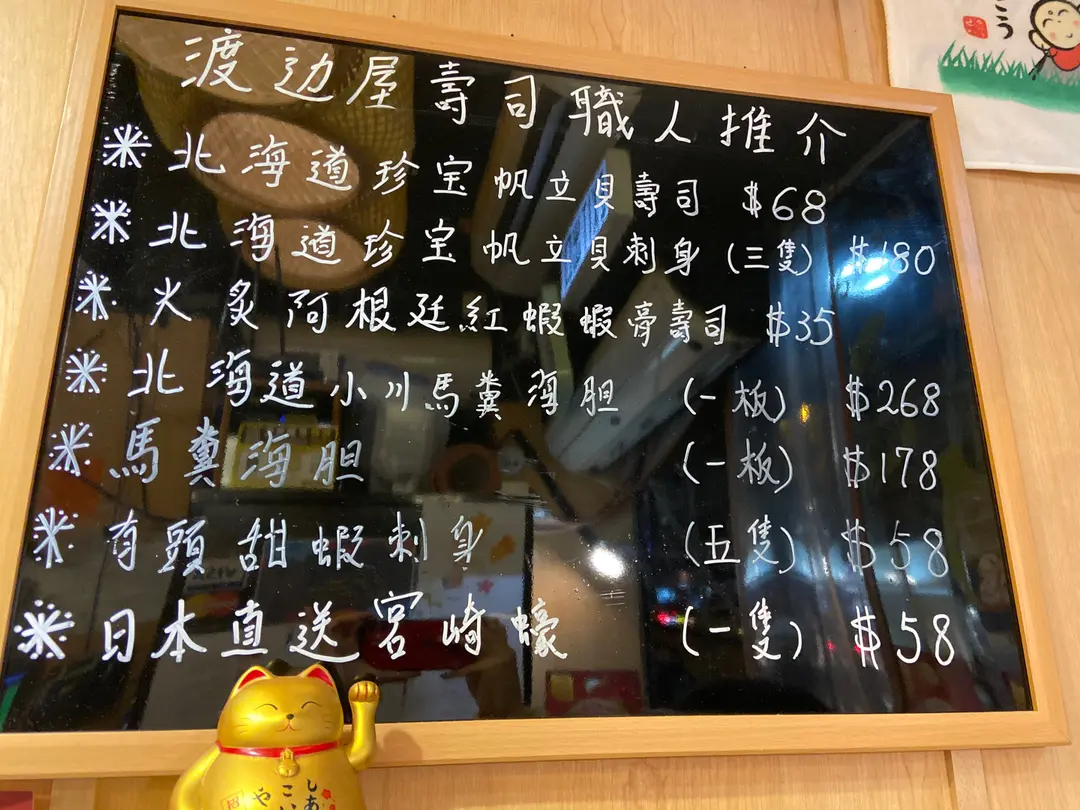 こう
渡边屋壽司職人推介
北海道珍宝帆立貝壽司 $68
北海道珍宝帆立貝刺身 (三隻) $180
火炙阿根廷紅蝦蝦膏壽司 $35
北海道小川馬糞海胆 (一板) $268
馬糞海胆 (一板) $178
有頭甜蝦刺身 (五隻) $58
日本直送宮崎蠔 (一隻) $58